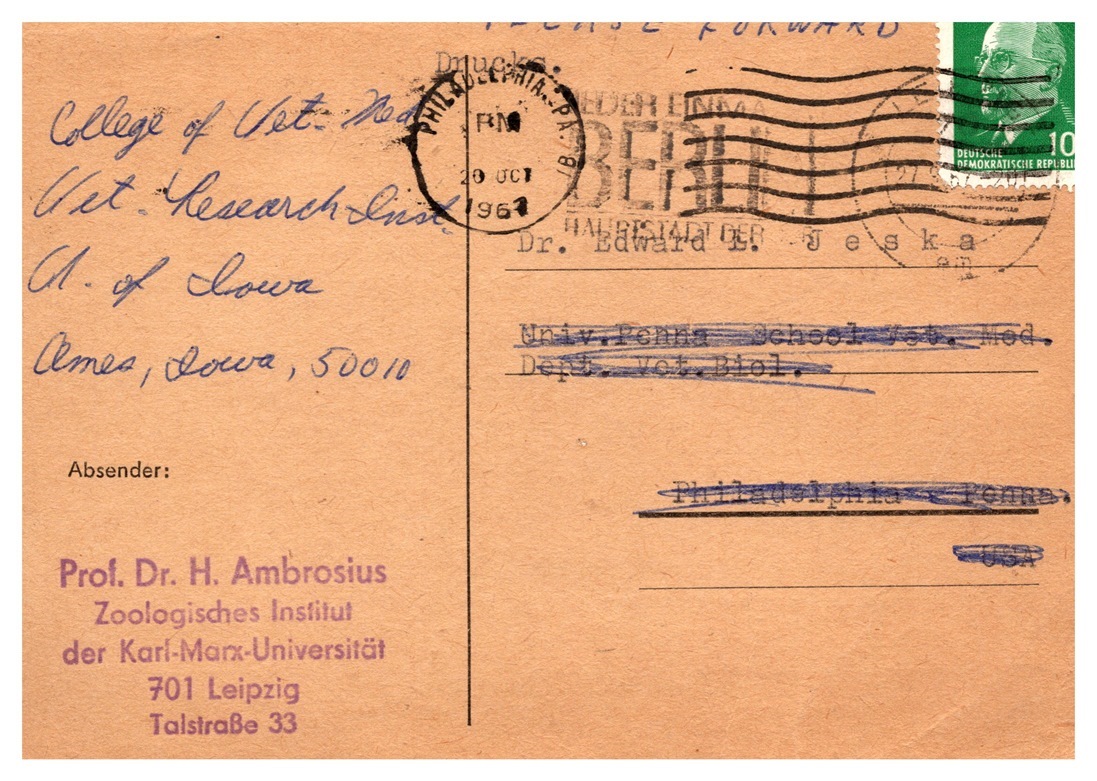 PLEASE FORWARD
Drucks.
College of Vet. Med.
Vet. Research Inst.
U. of Iowa
Ames, Iowa, 50010
PHILADELPHIA, PA.
PM
20 OCT
1967
WIEDER EINMAL
BERLIN
HAUPTSTADT DER
DEUTSCHE 10
DEMOKRATISCHE REPUBLIK
Dr. Edward L. Jeska
Univ.Penna School Vet. Med.
Dept. Vet.Biol.
Philadelphia Penna.
USA
Absender:
Prof. Dr. H. Ambrosius
Zoologisches Institut
der Karl-Marx-Universität
701 Leipzig
Talstraße 33